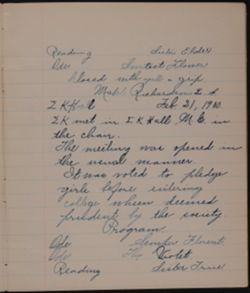 Reading Sister Elden
Ode Contest Flower
Closed with a grip
Mabel Richardson
Σ K Hall Feb 21, 1910.
Σ K met in Σ K Hall M. E. in
the chair.
The meeting was opened in
the usual manner.
It was voted to pledge
girls before entering
college when deemed
prudent by the society.
Program.
Ode
Ode Violet
Reading Sister True